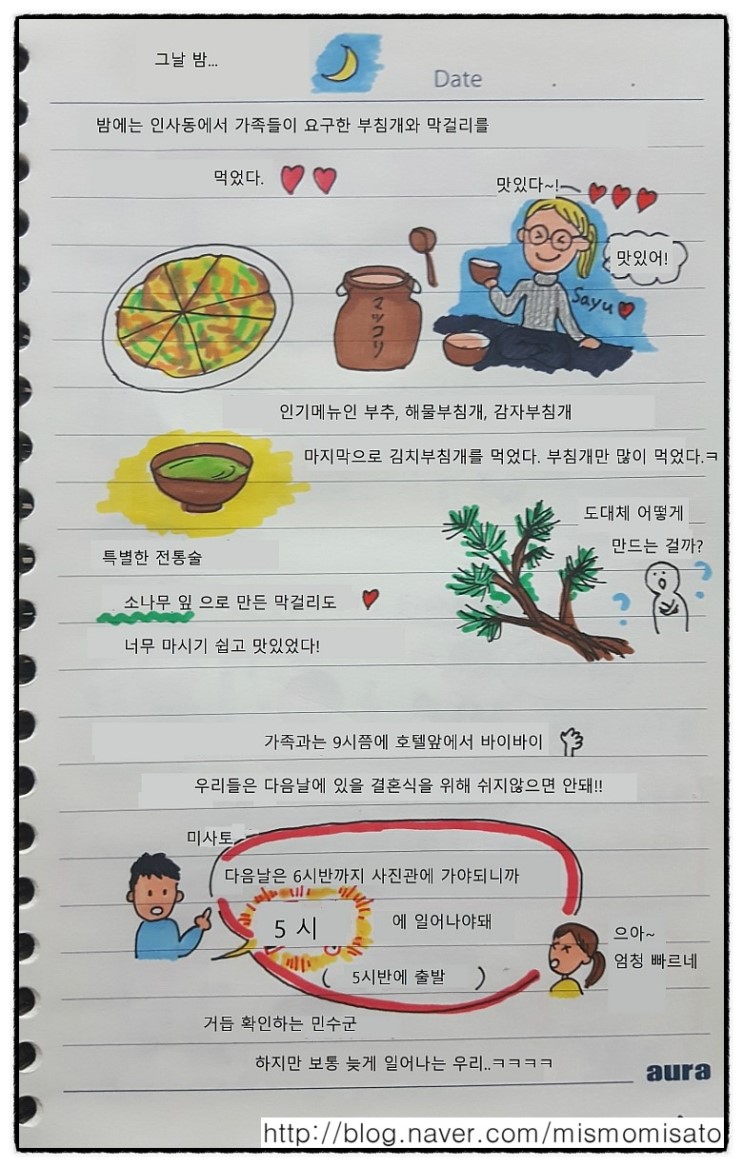 그날 밤...
Date . .
밤에는 인사동에서 가족들이 요구한 부침개와 막걸리를
먹었다.
맛있다~!
맛있어!
Sayu
マッコリ
인기메뉴인 부추, 해물부침개, 감자부침개
마지막으로 김치부침개를 먹었다. 부침개만 많이 먹었다.ㅋ
도대체 어떻게
만드는 걸까?
특별한 전통술
소나무 잎 으로 만든 막걸리도
너무 마시기 쉽고 맛있었다!
가족과는 9시쯤에 호텔앞에서 바이바이
우리들은 다음날에 있을 결혼식을 위해 쉬지않으면 안돼!!
미사토
다음날은 6시반까지 사진관에 가야되니까
5 시 에 일어나야돼
( 5시반에 출발 )
으아~
엄청 빠르네
거듭 확인하는 민수군
하지만 보통 늦게 일어나는 우리..ㅋㅋㅋㅋ
aura
http://blog.naver.com/mismomisato